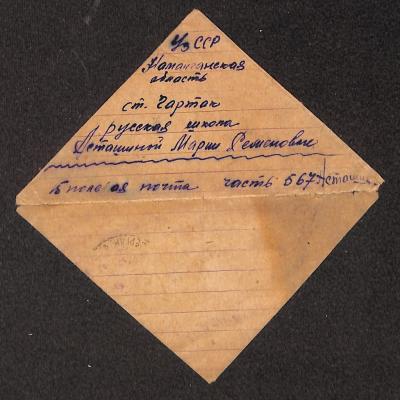 Уз ССР
Наманганская
область
ст. Чартак
русская школа
Асташиной Марии Семеновне
полевая почта часть 567 Асташин